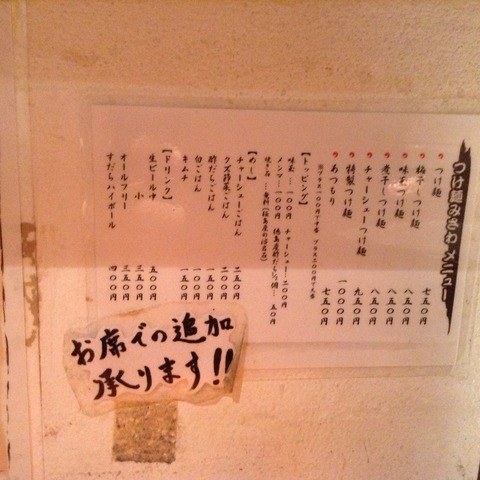 つけ麺みさわメニュー
つけ麺 七五〇円
梅干しつけ麺 八五〇円
味玉つけ麺 八五〇円
煮干しつけ麺 八五〇円
チャーシューつけ麺 九五〇円
特製つけ麺 一〇〇〇円
あつもり 七五〇円
※プラス一〇〇円で中盛 プラス二〇〇円で大盛
【トッピング】
味玉…一〇〇円 チャーシュー…二〇〇円
メンマ…一〇〇円
焼き石…無料
【めし】
チャーシューごはん 二五〇円
クズ野菜ごはん 二〇〇円
酢だちごはん 一五〇円
白ごはん 一〇〇円
キムチ 一五〇円
【ドリンク】
生ビール中 五〇〇円
小 三五〇円
オールフリー 三五〇円
すだちハイボール 四〇〇円
お席での追加
承ります!!